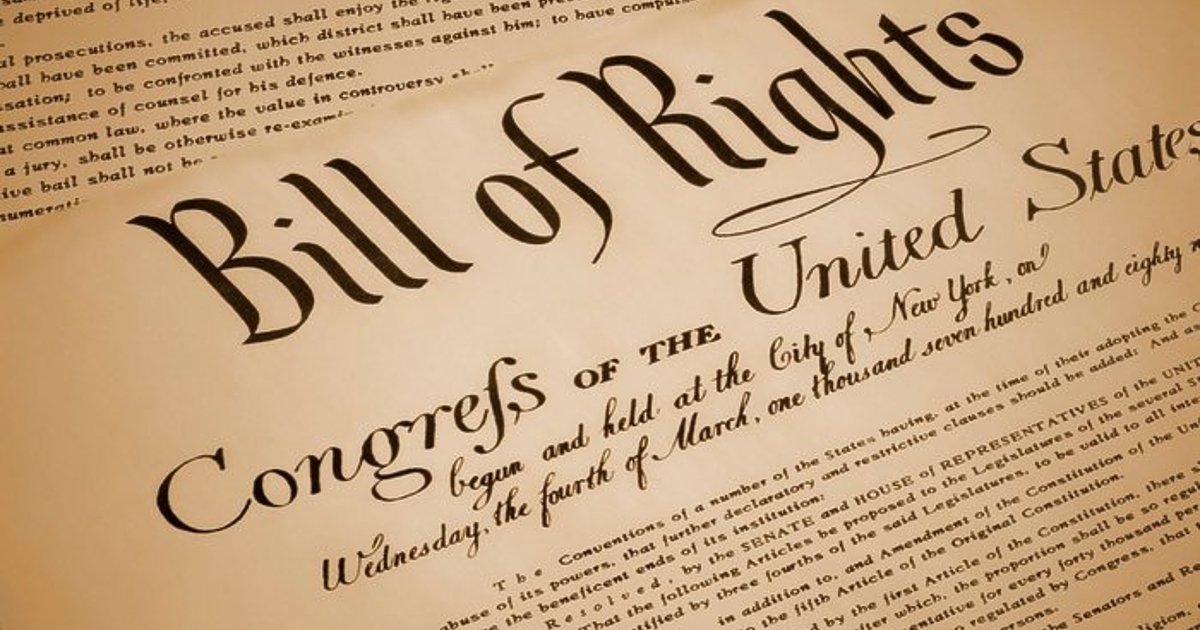 deprived of life,
al prosecutions, the accused shall enjoy the
all have been committed, which district shall have been
sation; to be confronted with the witnesses against him; to have
assistance of counsel for his defence.
at common law, where the value in controversy
a jury, shall be otherwise re-exami
ive bail shall not be
numerati
Bill of Rights
Congreſs OF THE United States
begun and held at the City of New York, on
Wednesday, the fourth of March, one thousand seven hundred and eighty
The Conventions of a number of the States having, at the time of their adopting the
buse of its powers, that further declaratory and restrictive clauses should be added: And as
the beneficent ends of its institution:
Resolved, by the SENATE and HOUSE of REPRESENTATIVES of the UNIT
That the following Articles be proposed to the Legislatures of the several
tified by three fourths of the said Legislatures, to be valid to all
in addition to, and Amendment of the Constitution of the
the fifth Article of the Original Constitution.
by the first Article of the Constitution, there
after which, the proportion shall be so
entative for every forty thousand
regulated by Congress, that
persons.
the Senators and